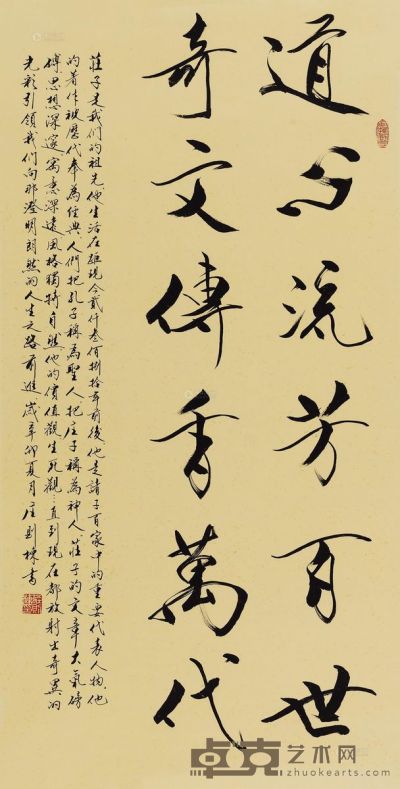 道与流芳百世
奇文傳香萬代
莊子是我们的祖先他生活在距現今貳仟叁佰捌拾年前後他是諸子百家中的重要代表人物他
的著作被歷代奉為经典人們把孔子稱為聖人把庄子稱為神人莊子的文章大氣磅
礡思想深邃寓意深遠風格獨特自然他的價值觀生死觀…直到現在都放射出奇異的
光彩引領我们向那澄明朗然的人生之路前進歲辛卯夏月庄則棟書
卓克艺术网
zhuokearts.com